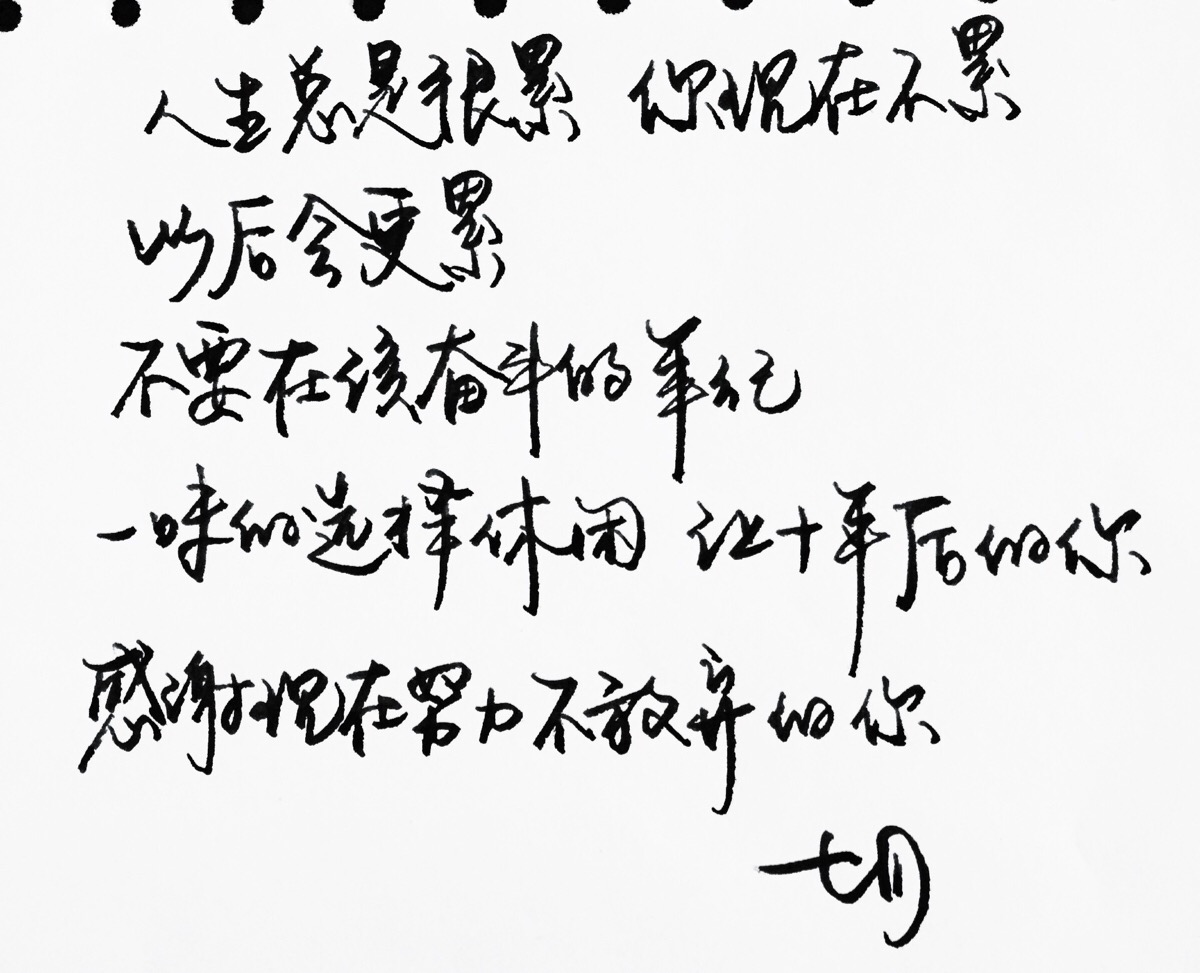 人生总是很累 你现在不累
以后会更累
不要在该奋斗的年纪
一味的选择休闲 让十年后的你
感谢现在努力不放弃的你
七月